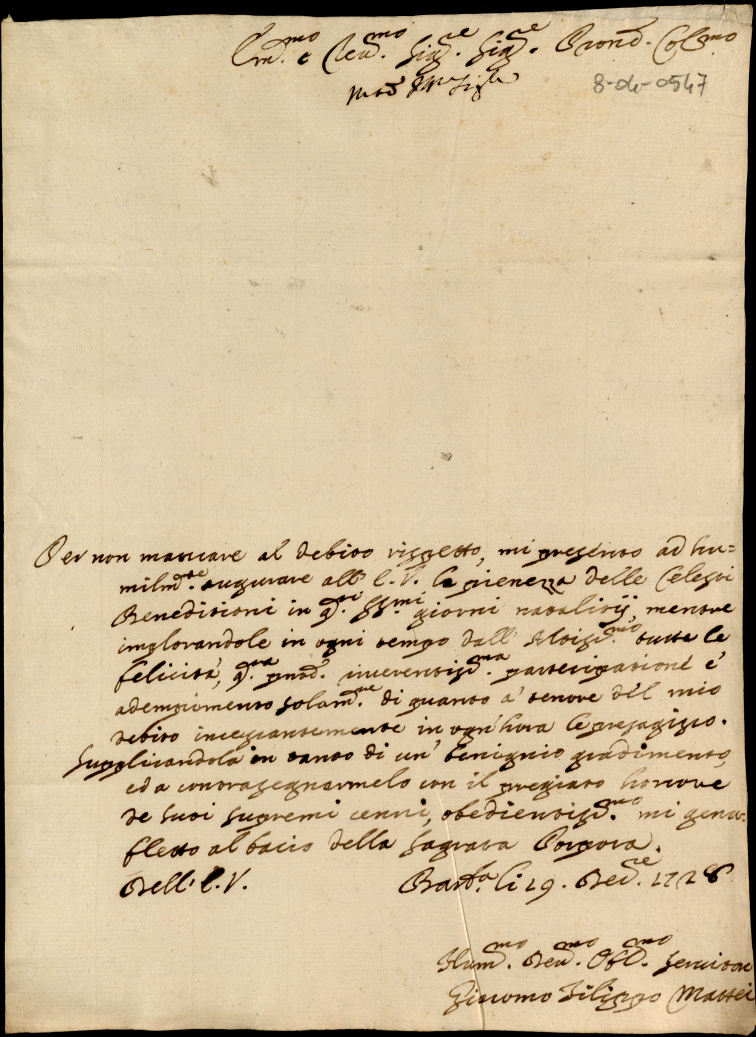 Em.mo e Rev.mo Sig.re Sig.re Pron. Col.mo
8-de-0547
Per non mancare al debito rispetto, mi presento ad hu=
milm.te augurare all' E.V. la pienezza delle Celesti
Benedittioni in q.ti SS.mi giorni natalitij, mentre
implorandole in ogni tempo dall' Altiss.mo tutte le
felicità, q.ta riverentiss.ma partecipatione è
adempimento solam.te di quanto a' tenore del mio
debito incessantemente in ogn'hora le presagisco.
Supplicandola in tanto di un' benignio gradimento,
ed a contrasegnarmelo con il pregiato honore
de suoi supremi cenni, obedientiss.mo mi genu-
fletto al bacio della Sagrata Porpora.
Dell' E.V. li 19. Dec.re 1728
Hum.mo Dev.mo Obl.mo Servitore
Giacomo Filippo Mattei